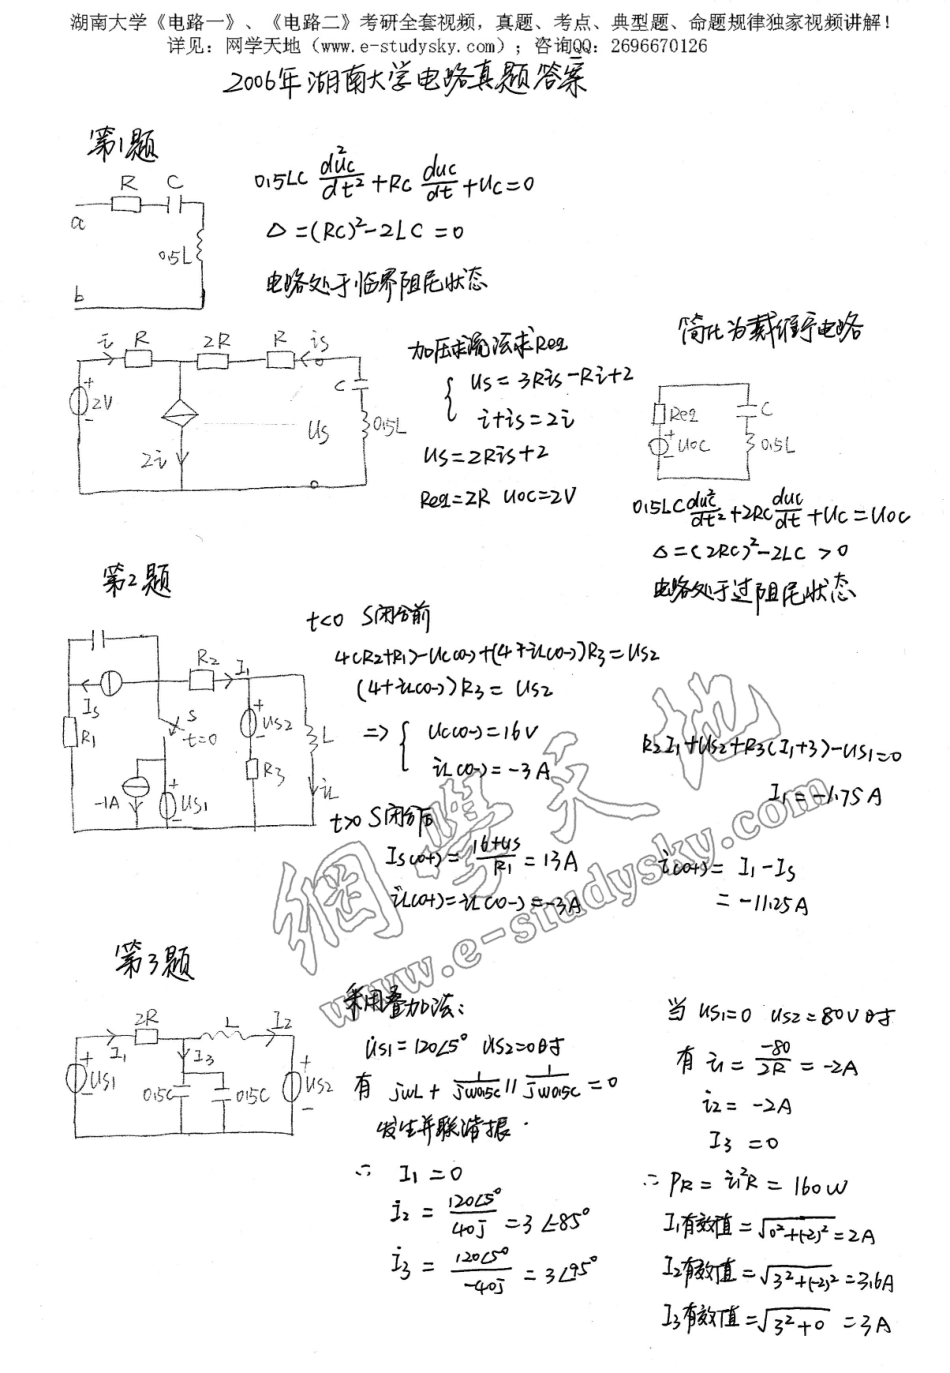 湖南大学《电路一》、《电路二》考研全套视频，真题、考点、典型题、命题规律独家视频讲解！
详见：网学天地（www.e-studysky.com）；咨询QQ：2696670126
2006年湖南大学电路真题答案
第1题
R C
a
0.5L
b
0.5LC d²uc/dt² + RC duc/dt + uc = 0
Δ = (RC)² - 2LC = 0
电路处于临界阻尼状态
i R 2R R is
2V
C
0.5L
us
2i
加压求流法求Req
us = 3Ris - Ri + 2
i + is = 2i
us = 2Ris + 2
Req = 2R uoc = 2V
简化为戴维宁电路
Req C
uoc 0.5L
0.5LC d²uc/dt² + 2RC duc/dt + uc = uoc
Δ = (2RC)² - 2LC > 0
电路处于过阻尼状态
第2题
R2 I1
Is
R1
S
t=0
US2
L
R3
-1A
US1
iL
t<0 S闭合前
4(R2+R1) - uc(0-) + (4+iL(0-))R3 = US2
(4+iL(0-))R3 = US2
⇒ { uc(0-) = 16V
iL(0-) = -3A
t>0 S闭合后
Is(0+) = (16+us)/R1 = 13A
iL(0+) = iL(0-) = -3A
R2I1 + US2 + R3(I1+3) - US1 = 0
I1 = -1.75A
i(0+) = I1 - Is
= -11.25A
網學天地
www.e-studysky.com
第3题
2R L I2
I1 I3
US1 0.5C 0.5C US2
采用叠加法：
u̇s1 = 120∠5° u̇s2=0时
有 jwL + 1/jw0.5C // 1/jw0.5C = 0
发生并联谐振.
∴ I1 = 0
İ2 = 120∠5°/40j = 3∠-85°
İ3 = 120∠5°/-40j = 3∠95°
当 us1=0 us2=80V时
有 i1 = -80/2R = -2A
i2 = -2A
I3 = 0
∴ PR = i1²R = 160W
I1有效值 = √0²+(-2)² = 2A
I2有效值 = √3²+(-2)² = 3.6A
I3有效值 = √3²+0 = 3A